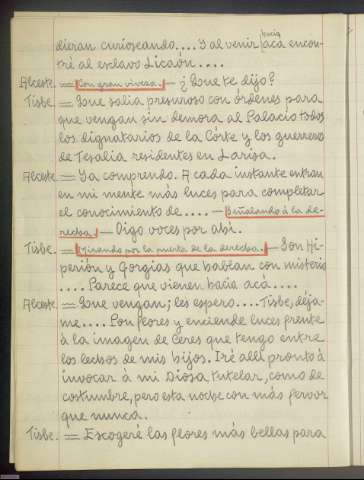 dieran curioseando.... Y al venir hacia acá encon-
tré al esclavo Licaón....
Alceste. = Con gran viveza. — ¿Que te dijo?
Tisbe. = Que salia presuroso con órdenes para
que vengan sin demora al Palacio todos
los dignatarios de la Córte y los guerreros
de Tesalia residentes en Larisa.
Alceste = Ya comprendo. A cada instante entran
en mi mente más luces para completar
el conocimiento de.... — Señalando á la de-
recha — Oigo voces por ahí.
Tisbe. = Mirando por la puerta de la derecha. — Son Hi-
perión y Gorgias que hablan con misterio
.... Parece que vienen hacia acá....
Alceste = Que vengan; les espero.... Tisbe, déja-
me.... Pon flores y enciende luces frente
á la imagen de Ceres que tengo entre
los lechos de mis hijos. Iré allí pronto à
invocar á mi Diosa tutelar, como de
costumbre, pero esta noche con más fervor
que nunca.
Tisbe. = Escogeré las flores más bellas para